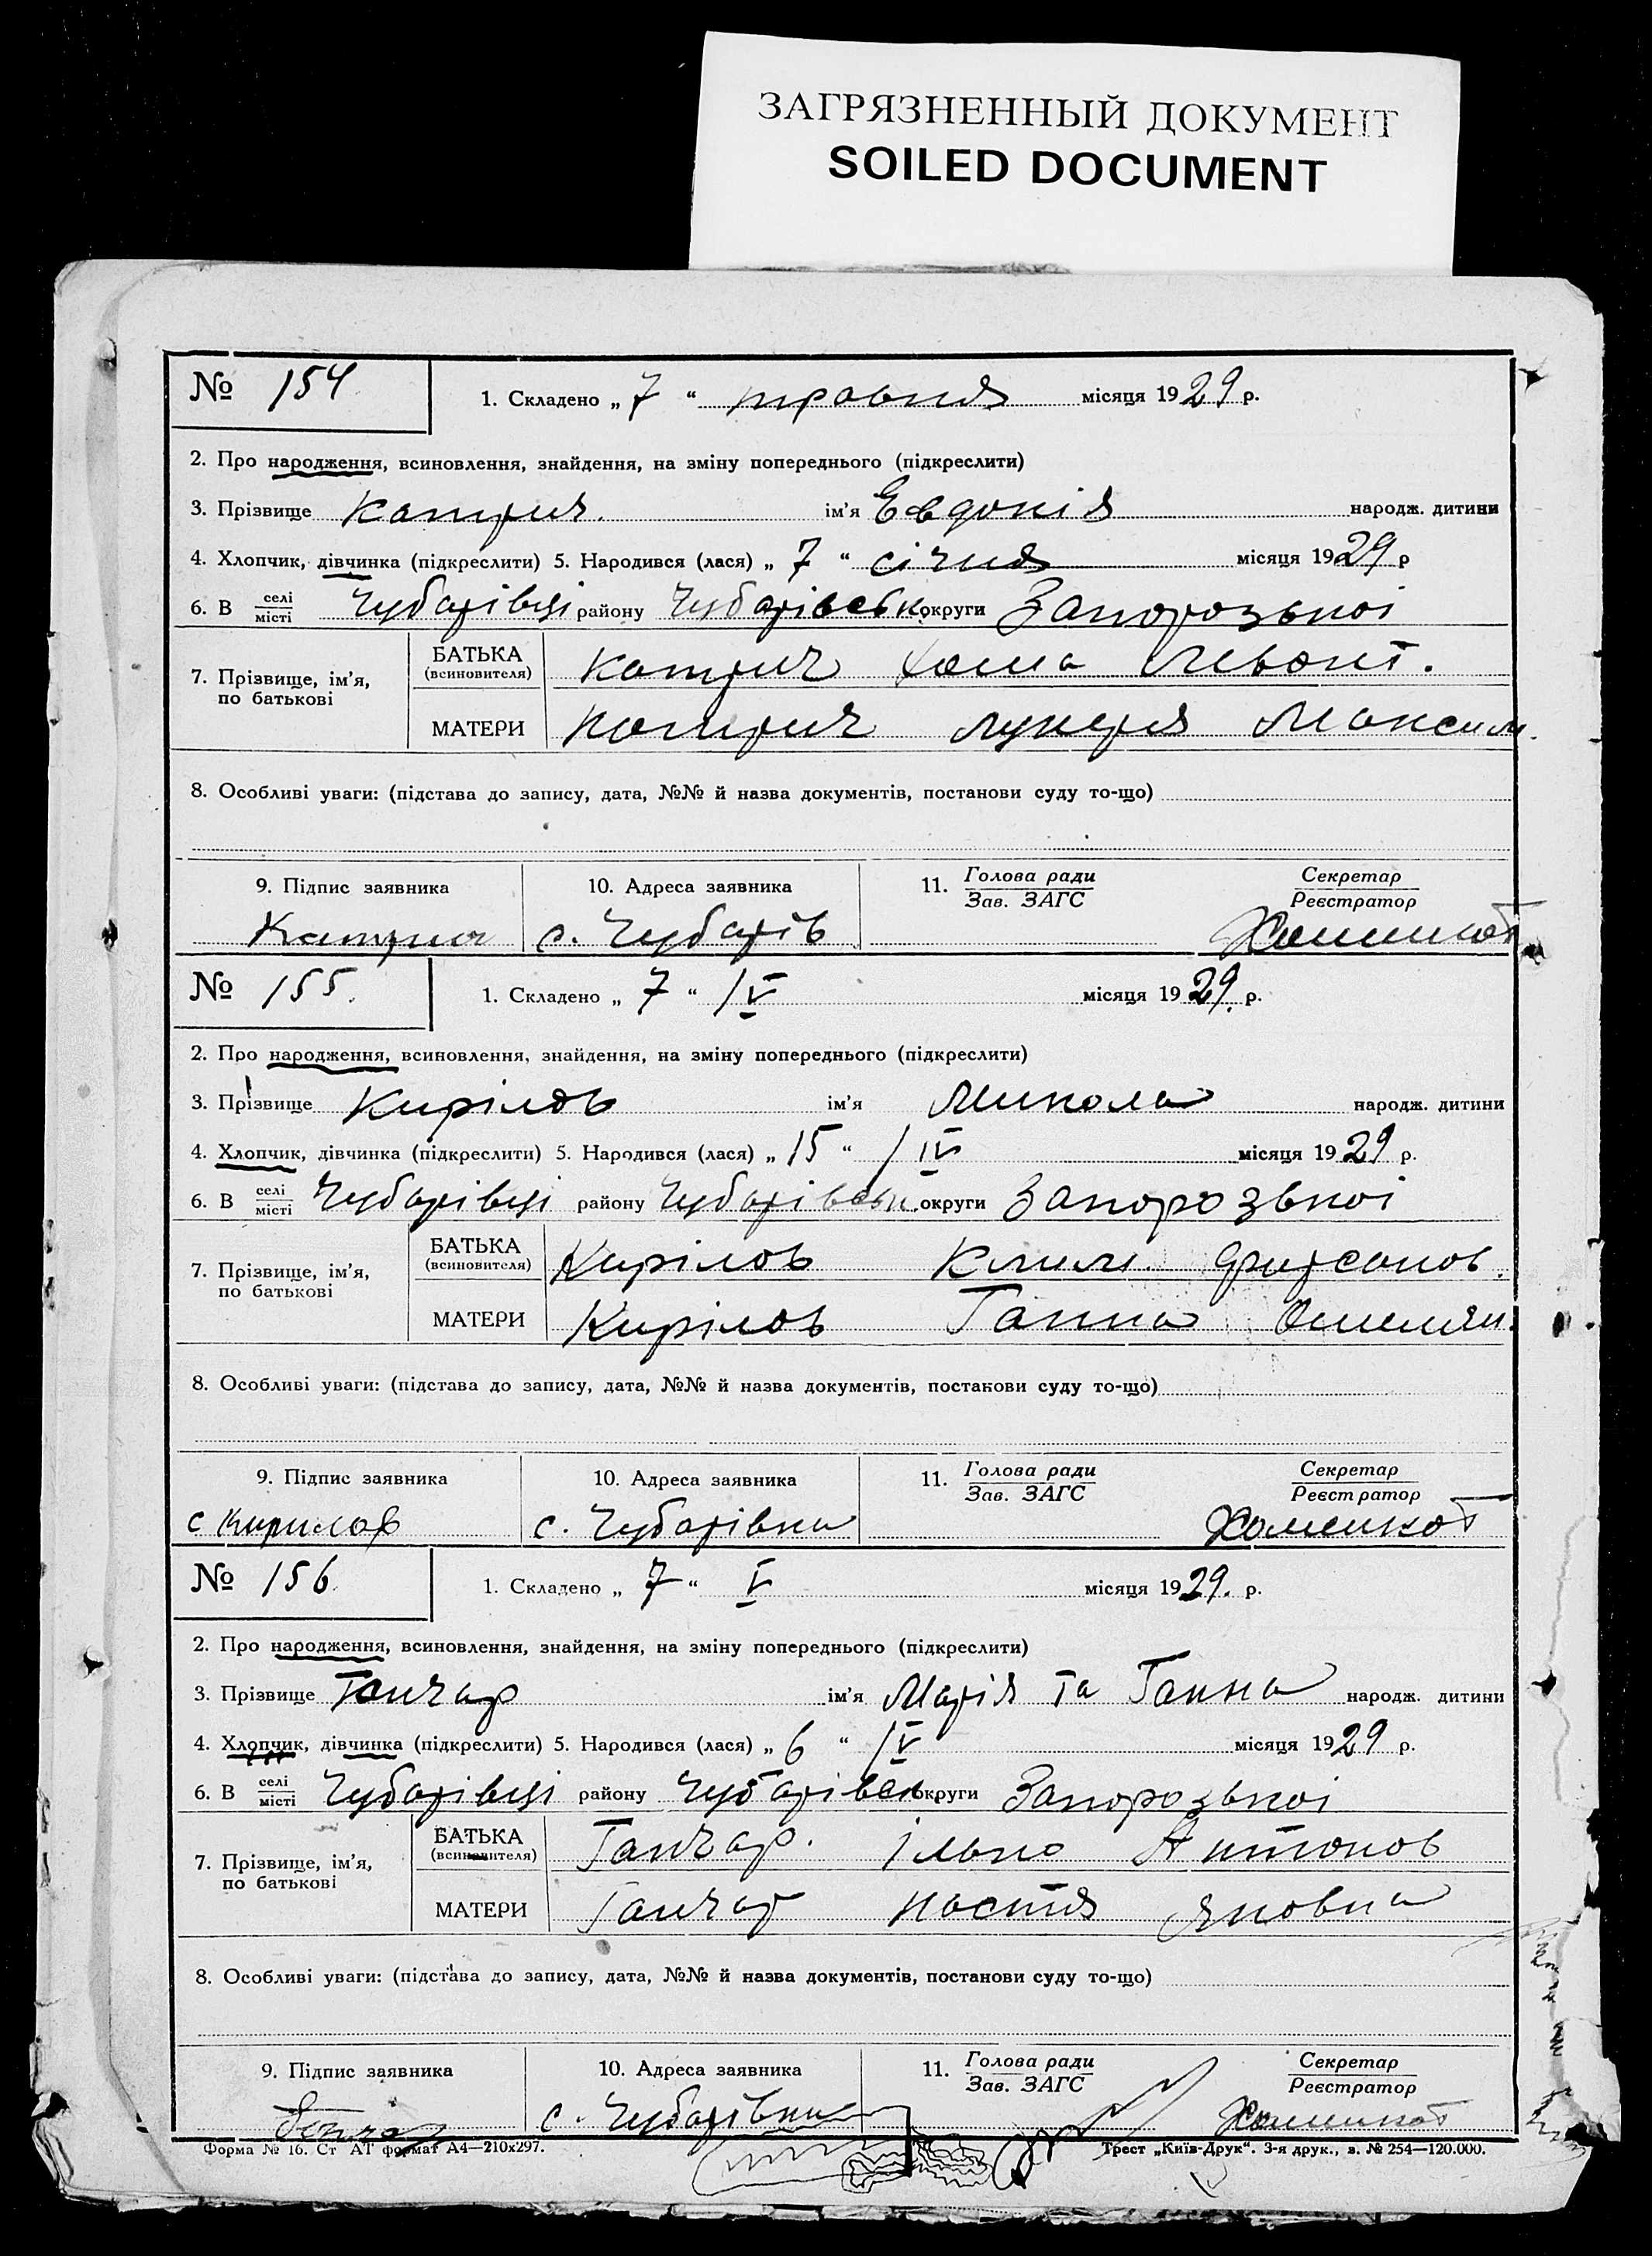 ЗАГРЯЗНЕННЫЙ ДОКУМЕНТ
SOILED DOCUMENT
№ 154 1. Складено „ 7 “ травня місяця 1929 р.
2. Про народження, всиновлення, знайдення, на зміну попереднього (підкреслити)
3. Прізвище Катрич. ім'я Евдокія народж. дитини
4. Хлопчик, дівчинка (підкреслити) 5. Народився (лася) „ 7 “ січня місяця 1929 р
6. В селі місті Чубарівці району Чубарівськ. округи Запорозької
7. Прізвище, ім'я, по батькові
БАТЬКА (всиновителя) Катрич Хома Левонт.
МАТЕРИ Катрич Лукеря Максим.
8. Особливі уваги: (підстава до запису, дата, №№ й назва документів, постанови суду то-що)
9. Підпис заявника 10. Адреса заявника 11. Голова ради Зав. ЗАГС Секретар Реєстратор
Катрич с. Чубарів
№ 155. 1. Складено „ 7 “ / V місяця 1929. р.
2. Про народження, всиновлення, знайдення, на зміну попереднього (підкреслити)
3. Прізвище Кирілов ім'я Микола народж. дитини
4. Хлопчик, дівчинка (підкреслити) 5. Народився (лася) „ 15 “ / IV місяця 1929 р.
6. В селі місті Чубарівці району Чубарівськ. округи Запорозької
7. Прізвище, ім'я, по батькові
БАТЬКА (всиновителя) Кирілов Клим
МАТЕРИ Кирілов Ганна
8. Особливі уваги: (підстава до запису, дата, №№ й назва документів, постанови суду то-що)
9. Підпис заявника 10. Адреса заявника 11. Голова ради Зав. ЗАГС Секретар Реєстратор
с Кирилов с. Чубарівка
№ 156. 1. Складено „ 7 “ V місяця 1929. р.
2. Про народження, всиновлення, знайдення, на зміну попереднього (підкреслити)
3. Прізвище Ганчар ім'я Марія та Ганна народж. дитини
4. Хлопчик, дівчинка (підкреслити) 5. Народився (лася) „ 6 “ / V місяця 1929 р.
6. В селі місті Чубарівці району Чубарівськ округи Запорозької
7. Прізвище, ім'я, по батькові
БАТЬКА (всиновителя) Ганчар. Ілько Антонов
МАТЕРИ Ганчар Настя Яковна
8. Особливі уваги: (підстава до запису, дата, №№ й назва документів, постанови суду то-що)
9. Підпис заявника 10. Адреса заявника 11. Голова ради Зав. ЗАГС Секретар Реєстратор
с. Чубарівка
Форма № 16. Ст АТ формат А4—210х297. Трест „Київ-Друк“. 3-я друк., з. № 254—120.000.